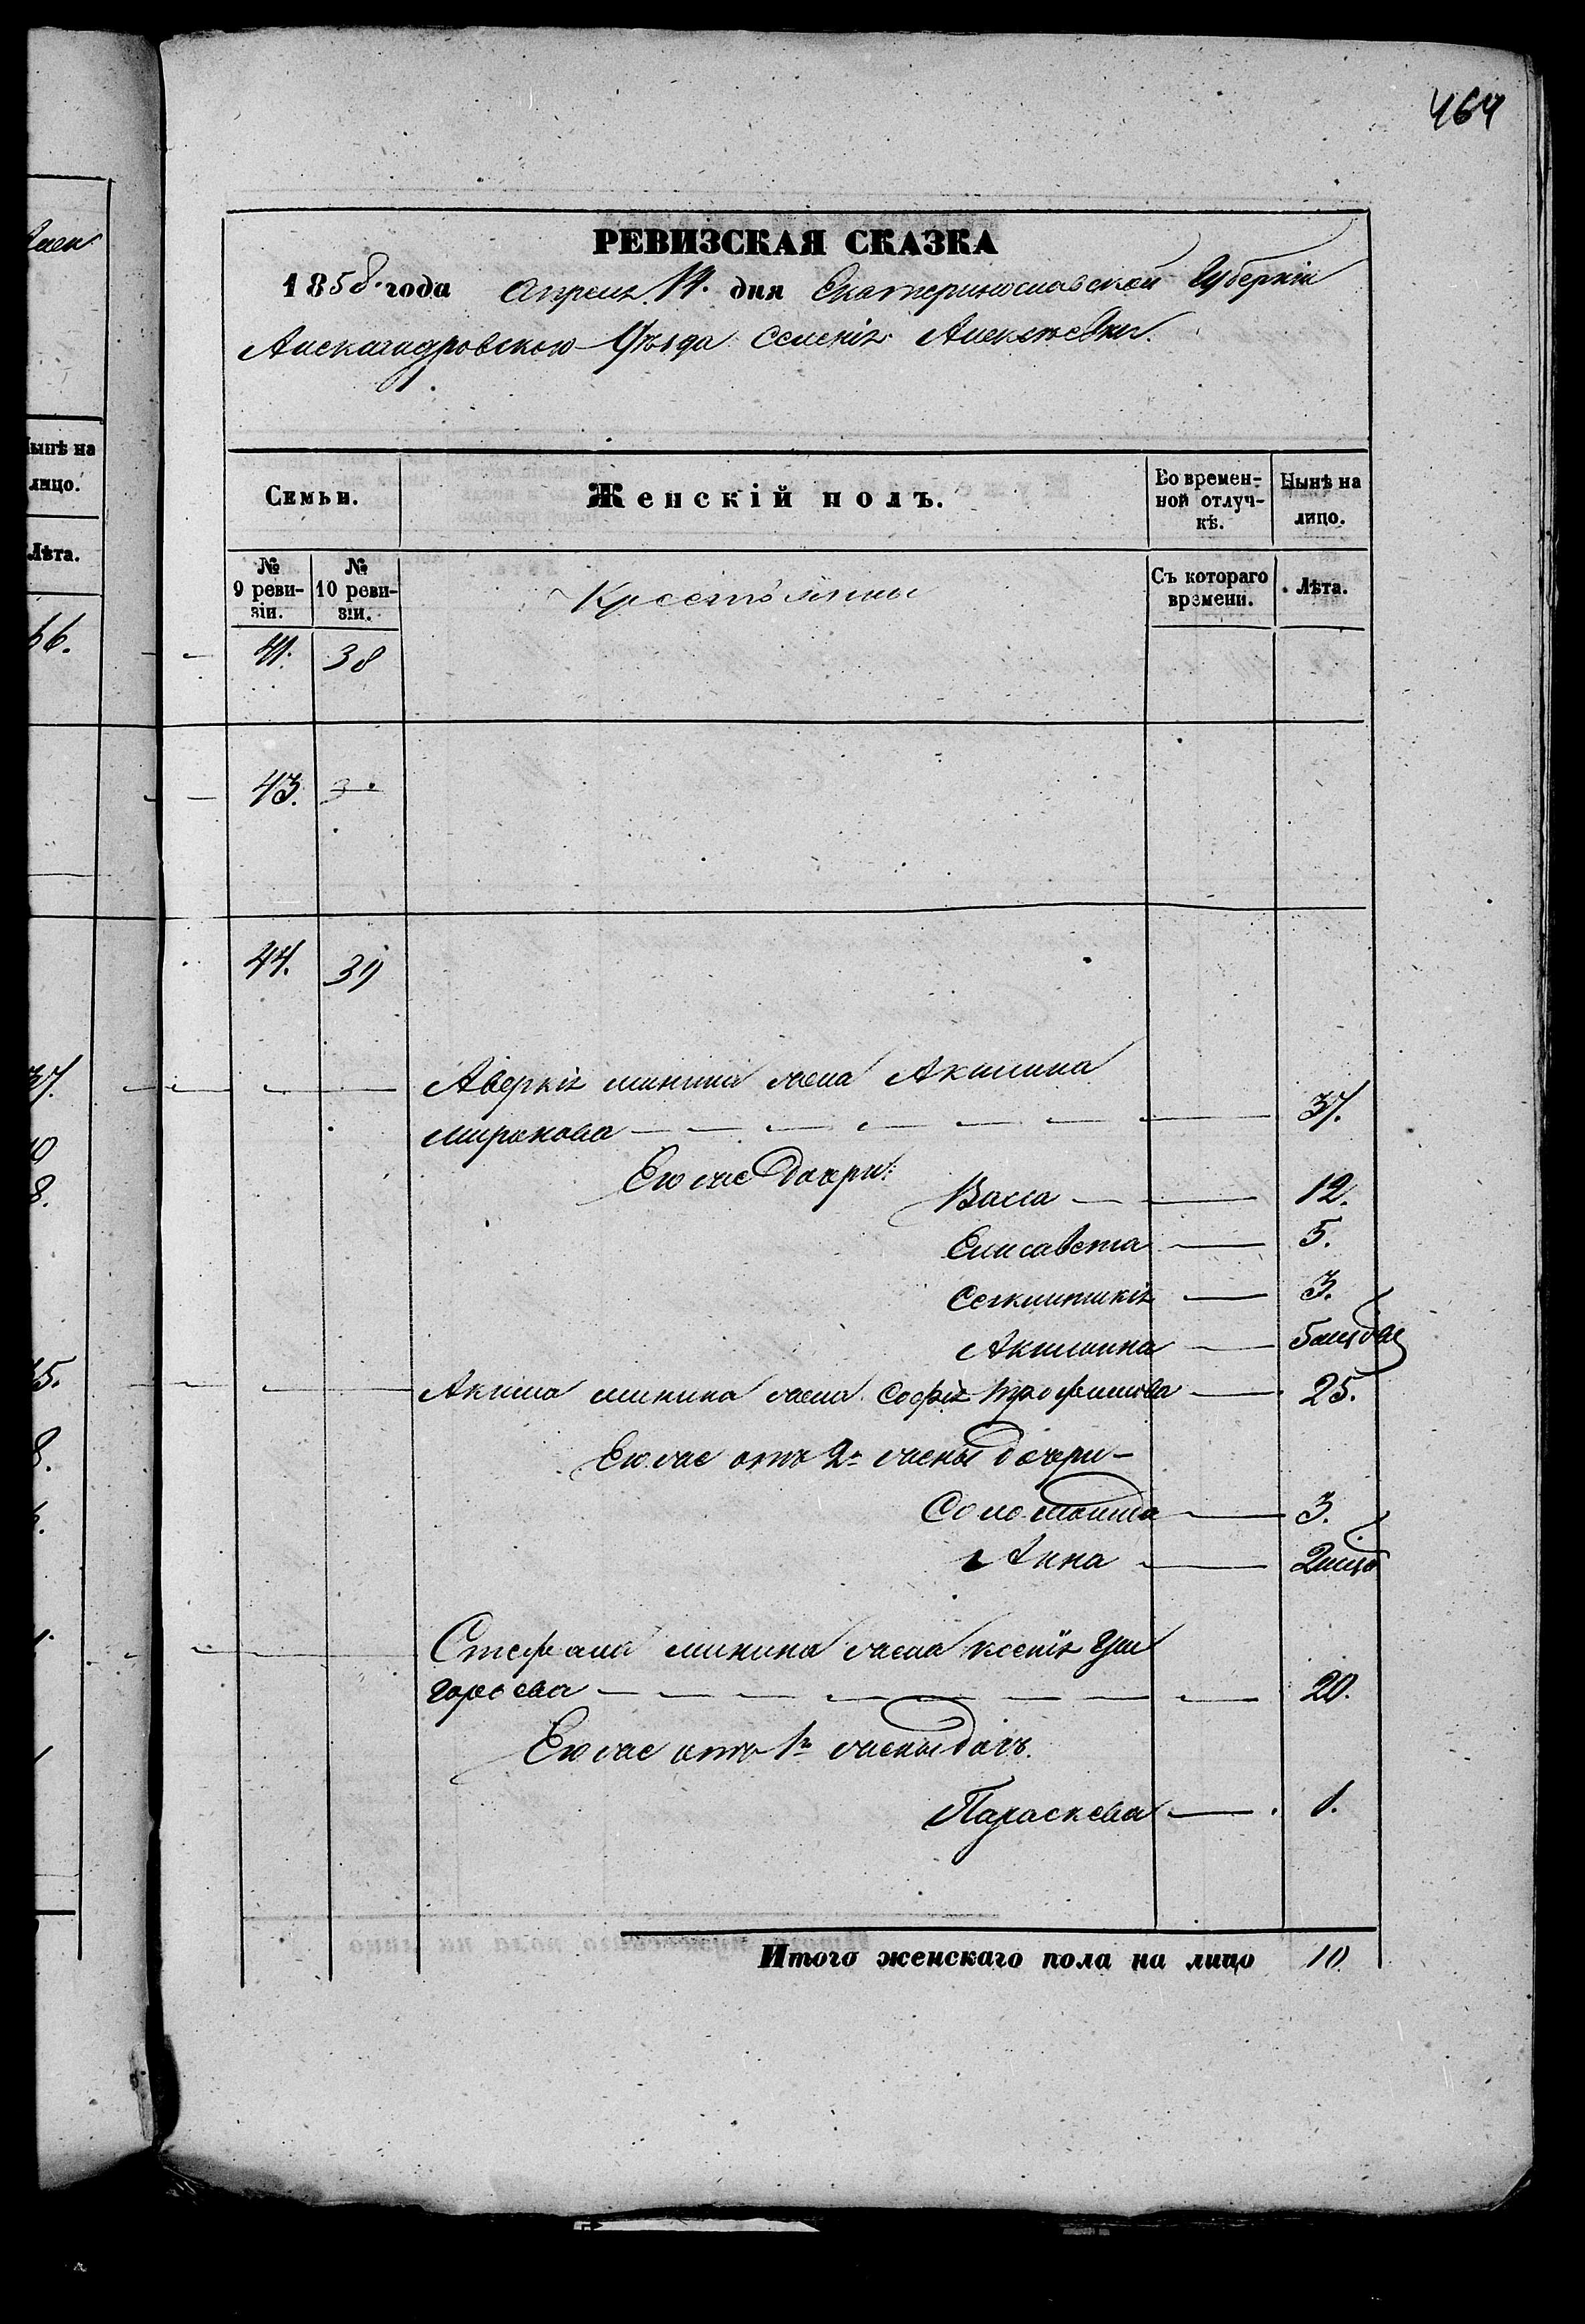 464
РЕВИЗСКАЯ СКАЗКА
1858 года Апреля 14. дня Екатеринославской Губерніи
Александровскаго Уѣзда Селенія Алексѣевки.
Семьи.
Женскій полъ.
Во времен-
ной отлуч-
кѣ.
Нынѣ на
лицо.
№
9 реви-
зіи.
№
10 реви-
зіи.
Крестьяны
Съ котораго
времени.
Лѣта.
41. 38
43.
44. 39
Аверкія минина жена Акилина
миронова 37.
Его же дочери:
Васса 12.
Елисавета 5.
3.
Акилина
Акима минина жена Софія Трофимова 25.
Его же отъ 2й жены дочери
Соломонида 3.
Анна
Стефана минина жена Ксенія Гри
горьева 20.
Его же отъ 1й жены дочь.
Параскева 1.
Итого женскаго пола на лицо 10
ынѣ на
лицо.
Лѣта.